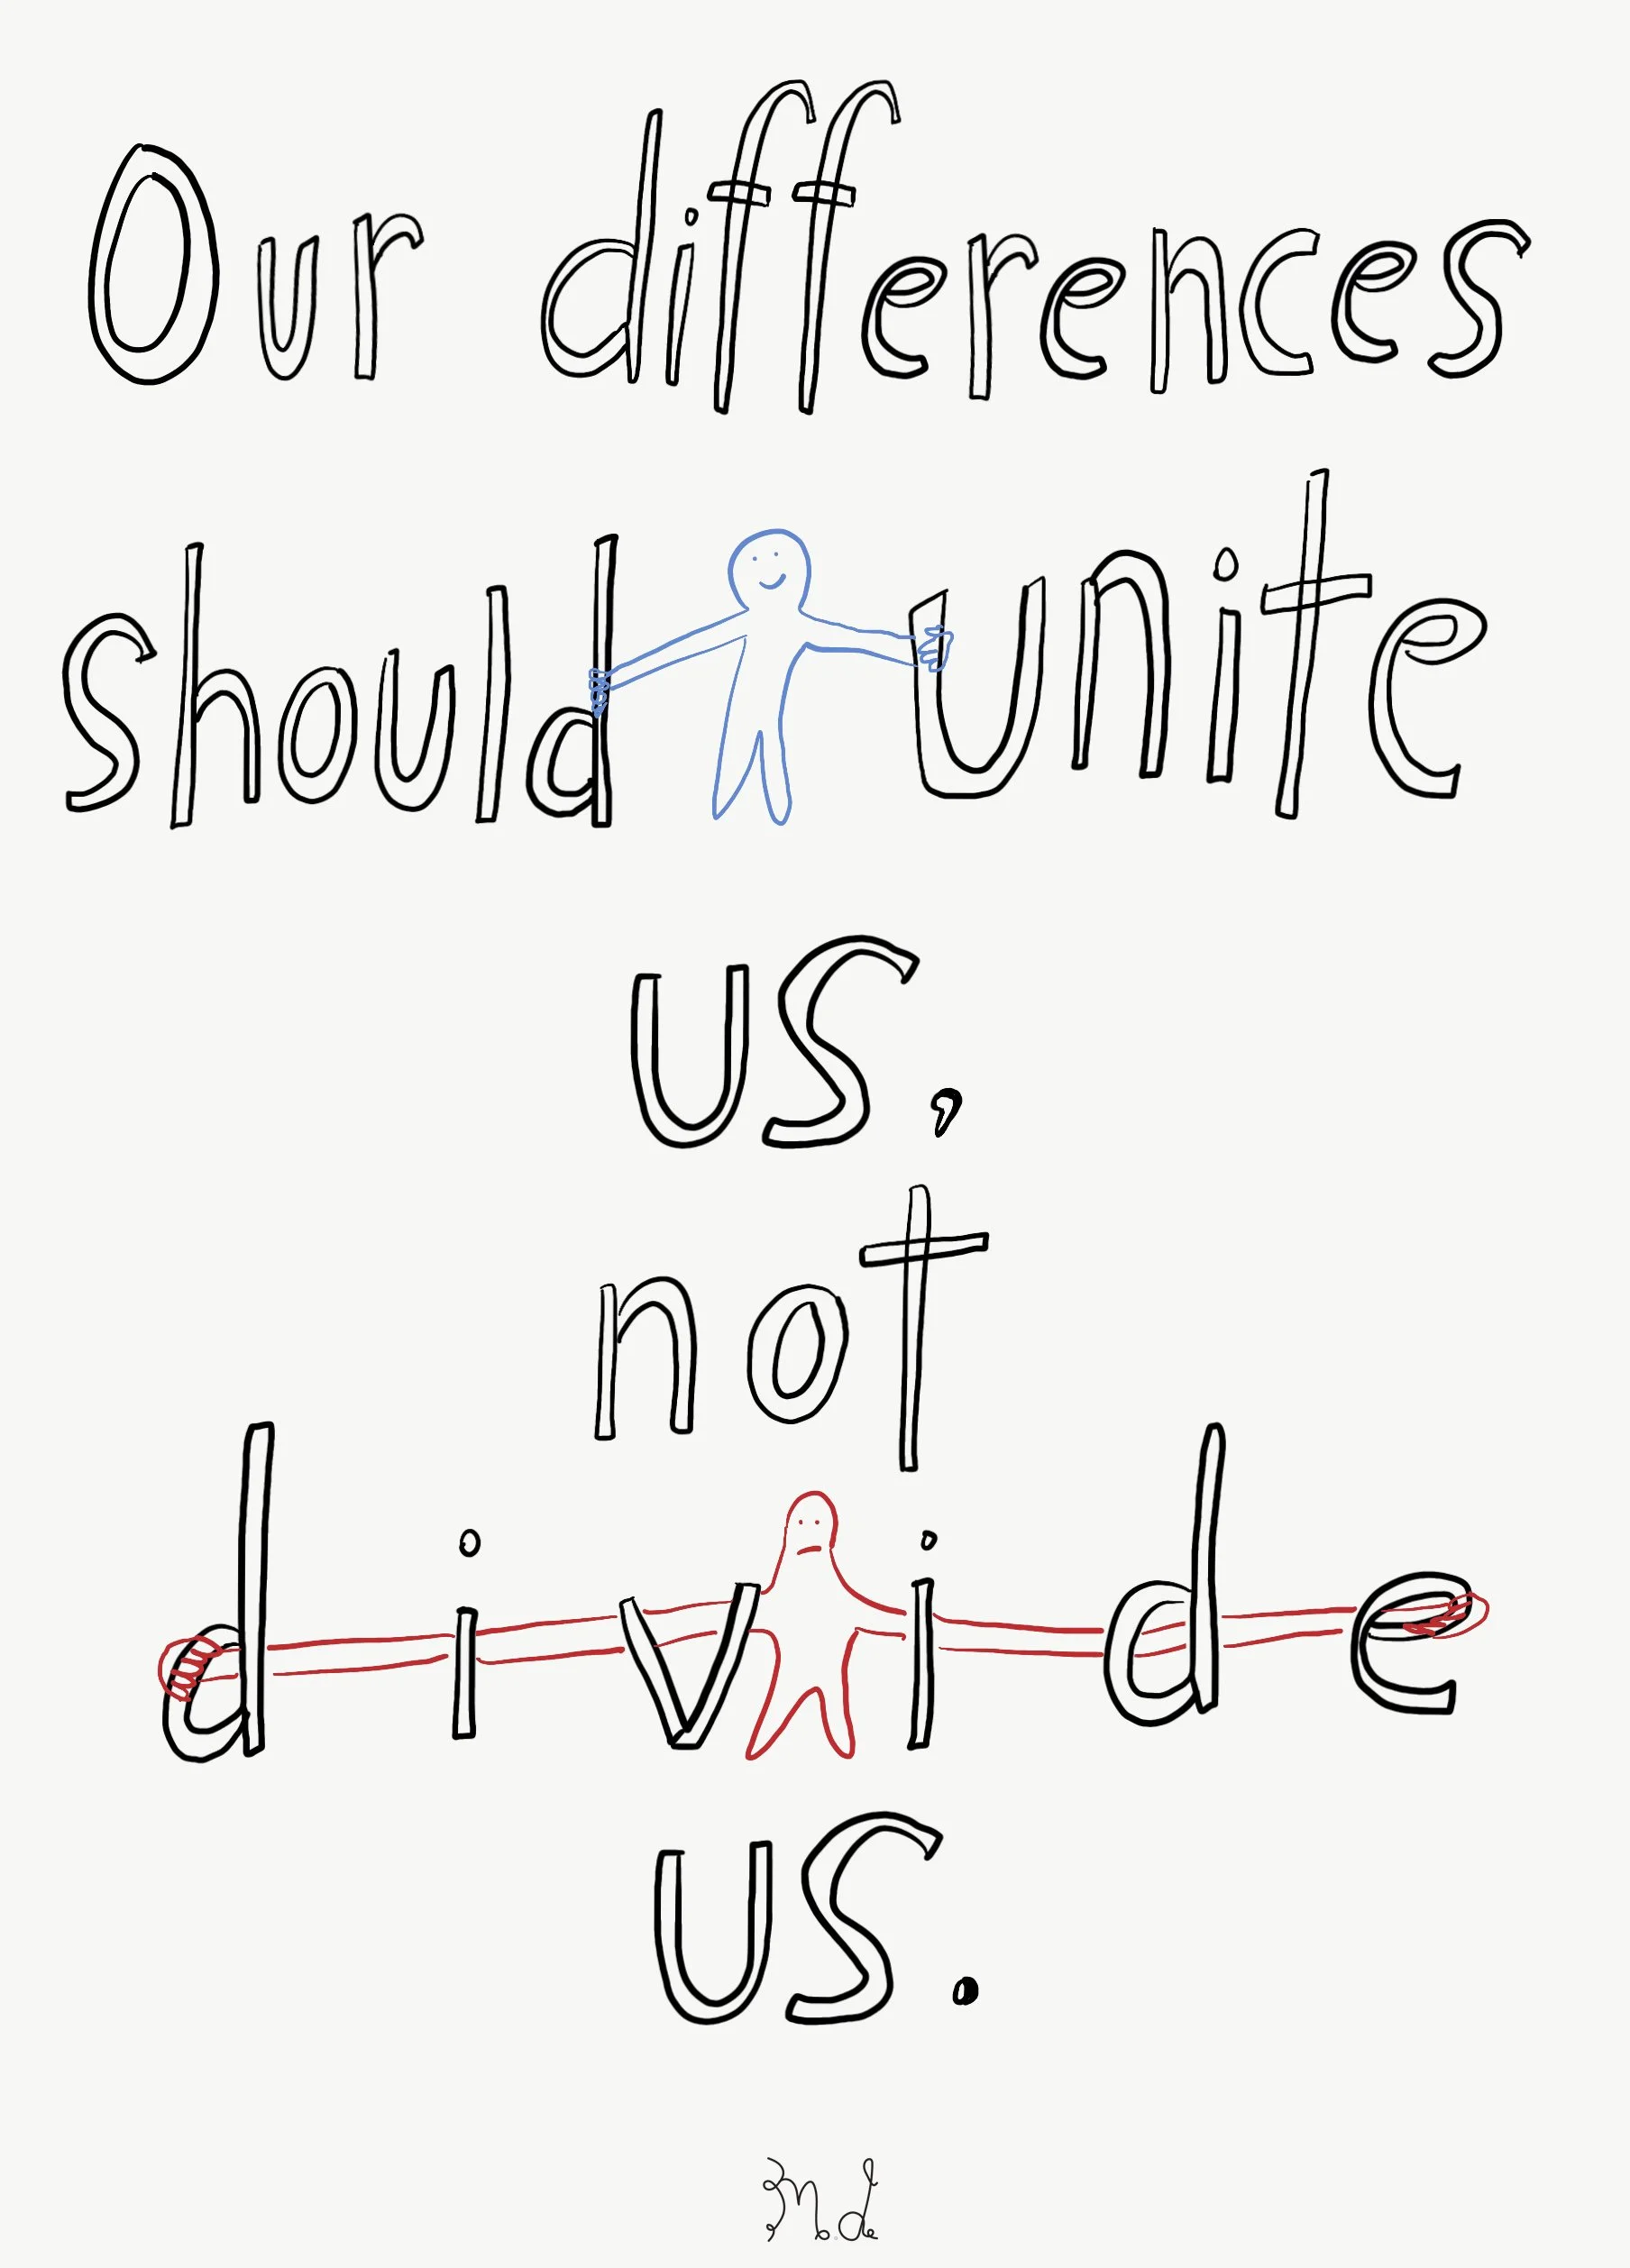 Our differences
should unite
us,
not
divide
us.